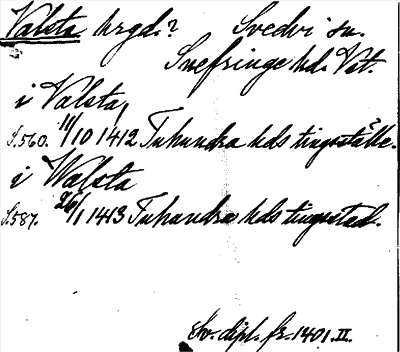 Valsta hrgd.? Svedvi sn.
Snefringe hd. Vst.
i Valsta,
S.560. 11/10 1412 Tuhundra hds tingsställe.
i Walsta
S.587. 26/1 1413 Tuhundra hds tingsstad.
Sv. dipl. fr. 1401. II.